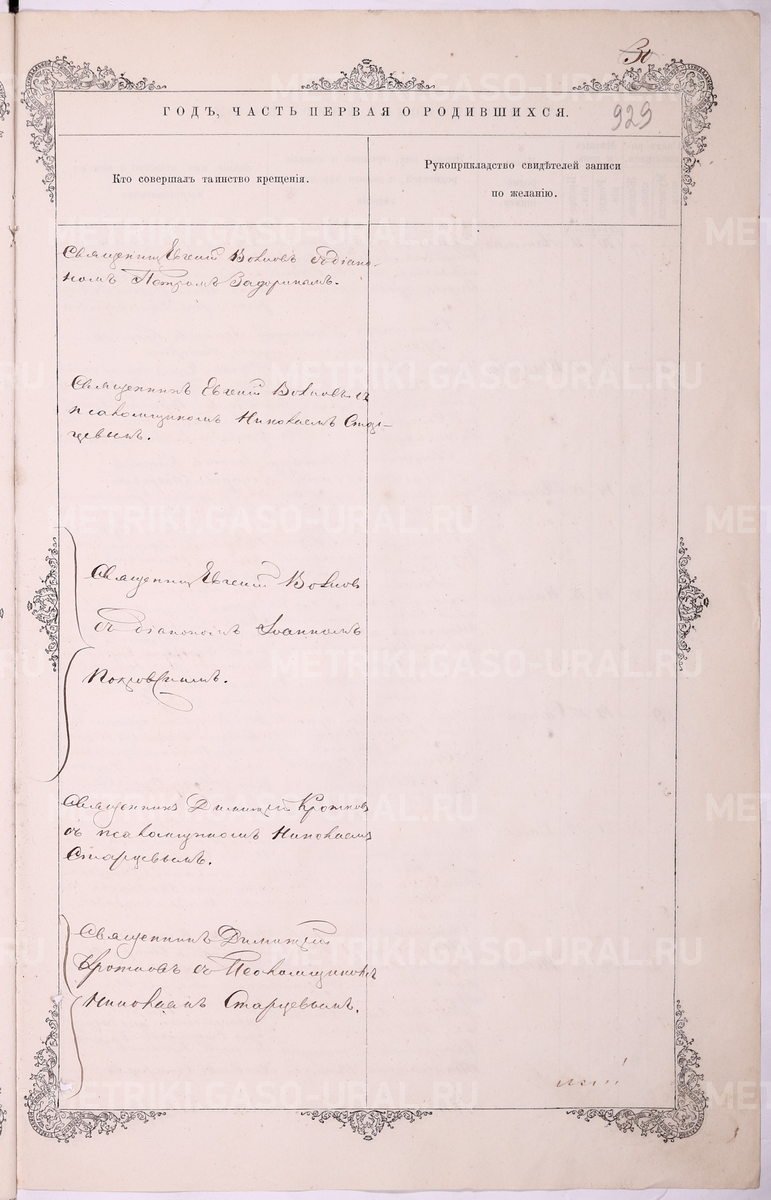 30
929
ГОДЪ, ЧАСТЬ ПЕРВАЯ О РОДИВШИХСЯ.
Кто совершалъ таинство крещенія.
Рукоприкладство свидѣтелей записи
по желанію.
Священникъ Евгеній съ діако-
номъ Петромъ Задоринымъ.
Священникъ Евгеній съ
псаломщикомъ Николаемъ Стар-
цевымъ.
Священникъ Евгеній
съ діакономъ Іоанномъ
Покровскимъ.
Священникъ Димитрій Кротковъ
съ псаломщикомъ Николаемъ
Старцевымъ.
Священникъ Димитрій
Кротковъ съ Псаломщикомъ
Николаемъ Старцевымъ.
METRIKI.GASO-URAL.RU